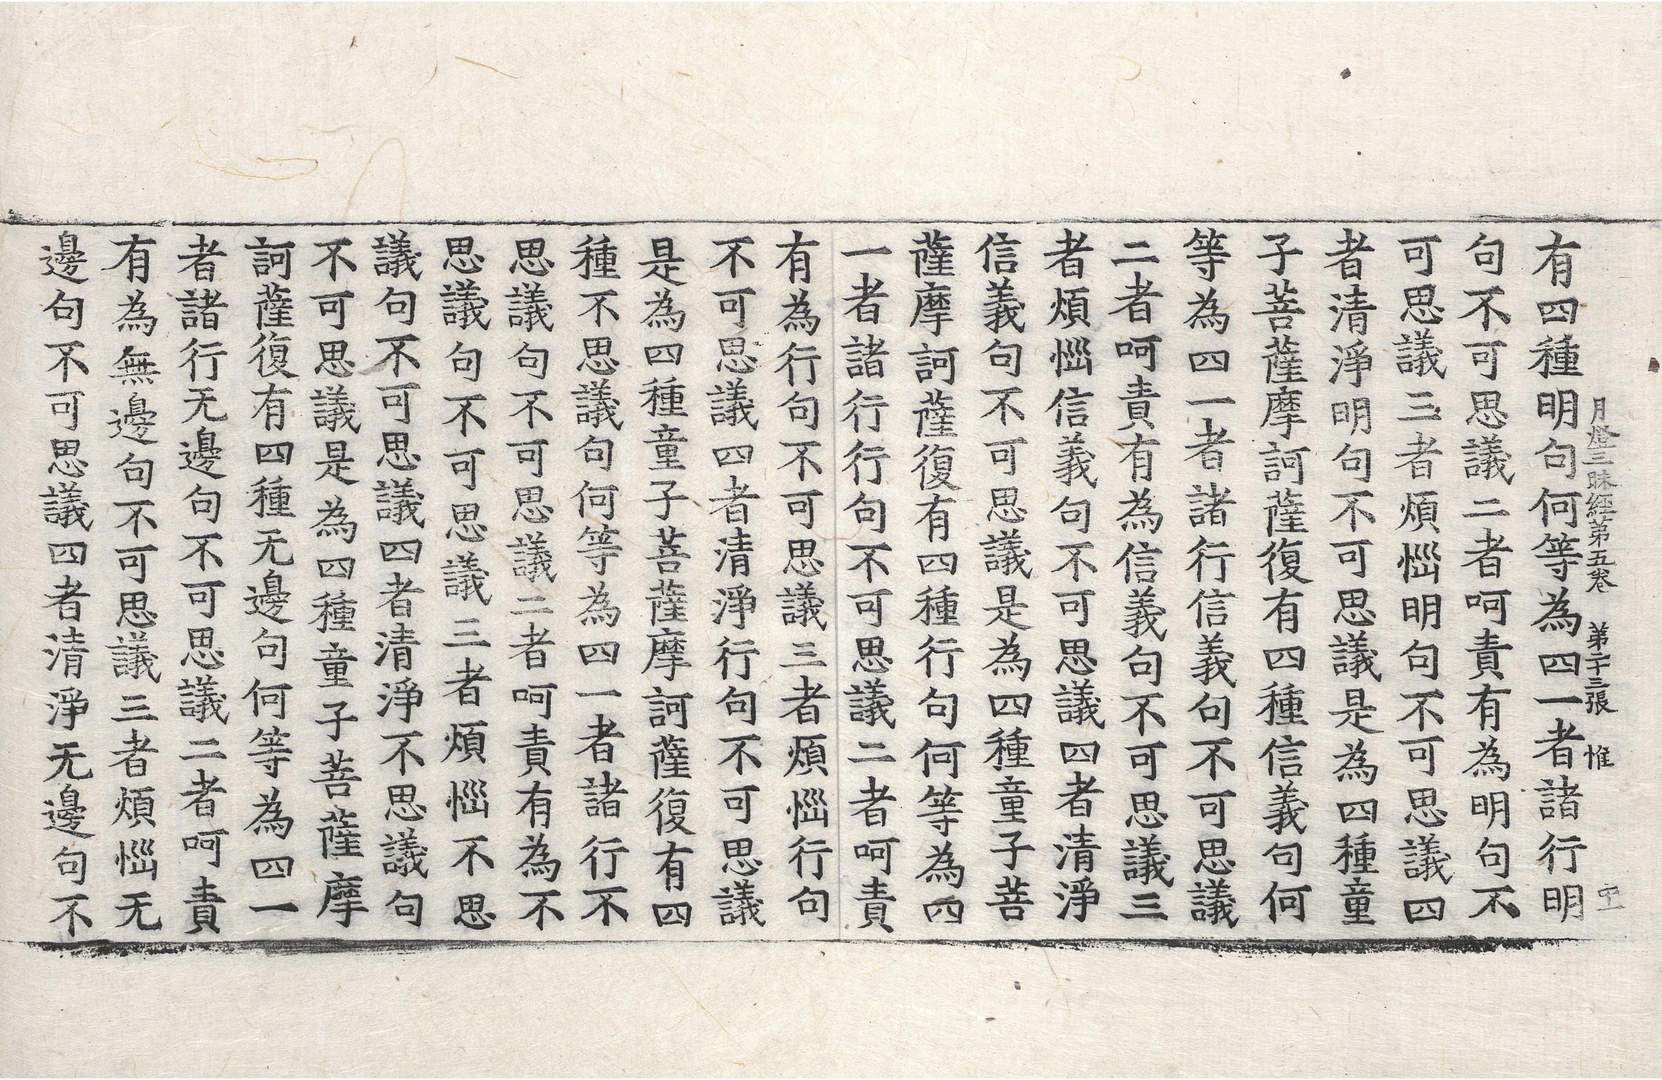 月燈三昧經第五卷 第十三張 惟
有四種明句何等為四一者諸行明
句不可思議二者呵責有為明句不
可思議三者煩惱明句不可思議四
者清淨明句不可思議是為四種童
子菩薩摩訶薩復有四種信義句何
等為四一者諸行信義句不可思議
二者呵責有為信義句不可思議三
者煩惱信義句不可思議四者清淨
信義句不可思議是為四種童子菩
薩摩訶薩復有四種行句何等為四
一者諸行行句不可思議二者呵責
有為行句不可思議三者煩惱行句
不可思議四者清淨行句不可思議
是為四種童子菩薩摩訶薩復有四
種不思議句何等為四一者諸行不
思議句不可思議二者呵責有為不
思議句不可思議三者煩惱不思
議句不可思議四者清淨不思議句
不可思議是為四種童子菩薩摩
訶薩復有四種无邊句何等為四一
者諸行无邊句不可思議二者呵責
有為無邊句不可思議三者煩惱无
邊句不可思議四者清淨无邊句不